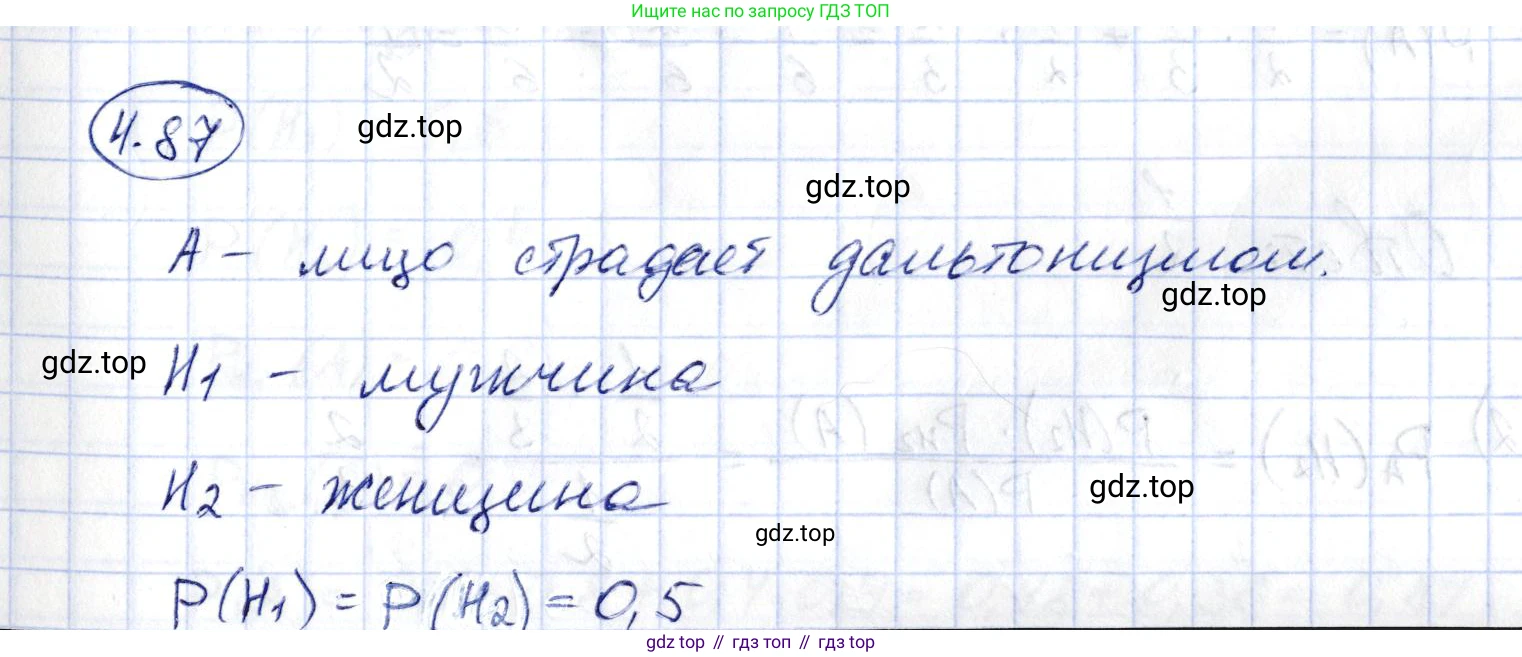 Ищите нас по запросу ГДЗ ТОП
4.87
gdz.top
gdz.top
A - лицо страдает дальтонизмом.
gdz.top
gdz.top
H1 - мужчина
H2 - женщина
gdz.top
gdz.top
P(H1) = P(H2) = 0,5
gdz top // гдз топ // гдз top